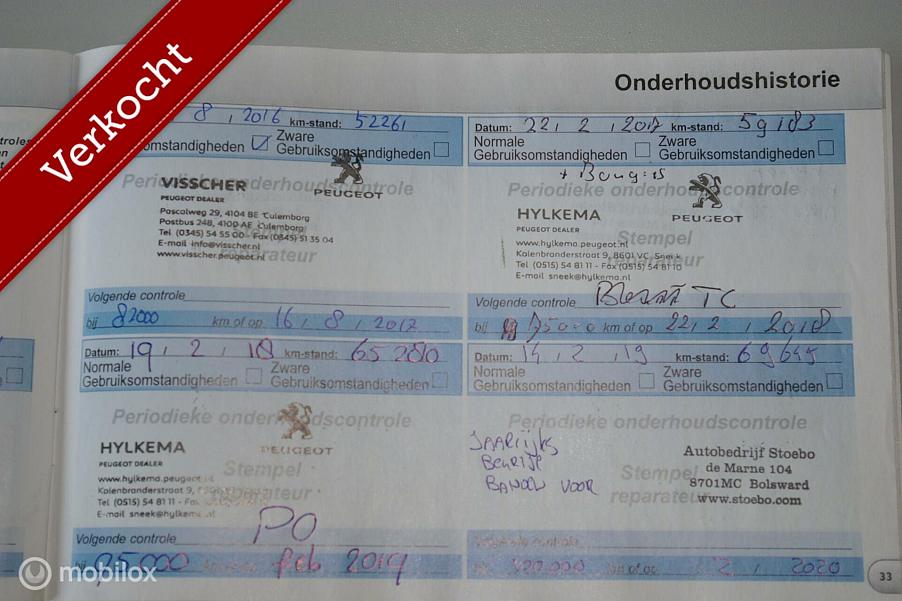 Verkocht
Onderhoudshistorie
8, 2016 km-stand: 52261
standigheden Zware
Gebruiksomstandigheden
Periodieke onderhoudscontrole
VISSCHER
PEUGEOT DEALER
PEUGEOT
Pascalweg 29, 4104 BE Culemborg
Postbus 248, 4100 AE Culemborg
Tel (0345) 54 55 00 - Fax (0345) 51 35 04
E-mail info@visscher.nl
www.visscher.peugeot.nl
reparateur
Volgende controle
bij 82000 km of op 16, 8, 2017
Datum: 22, 2, 2017 km-stand: 59183
Normale Zware
Gebruiksomstandigheden Gebruiksomstandigheden
+ Bougies
Periodieke onderhoudscontrole
HYLKEMA
PEUGEOT DEALER
PEUGEOT
Stempel
www.hylkema.peugeot.nl
Kalenbranderstraat 9, 8601 VC Sneek
Tel (0515) 54 81 11 - Fax (0515) 54 81 10
E-mail sneek@hylkema.nl
reparateur
Volgende controle TC
bij km of op 22, 2, 2018
Datum: 19, 2, 18 km-stand: 65280
Normale Zware
Gebruiksomstandigheden Gebruiksomstandigheden
Periodieke onderhoudscontrole
HYLKEMA
PEUGEOT DEALER
PEUGEOT
Stempel
www.hylkema.peugeot
Kalenbranderstraat 9,
Tel (0515) 54 81 11 - Fax (0515)
E-mail sneek@hylkema.nl
reparateur
Volgende controle PO
95.000 feb 2019
Datum: 14, 2, 19 km-stand: 69645
Normale Zware
Gebruiksomstandigheden Gebruiksomstandigheden
Periodieke onderhoudscontrole
JAARlijks
BEURTJE
BANDEN VOOR
Stempel
reparateur
Autobedrijf Stoebo
de Marne 104
8701MC Bolsward
www.stoebo.com
Volgende controle
km of op 2, 2020
33
mobilox